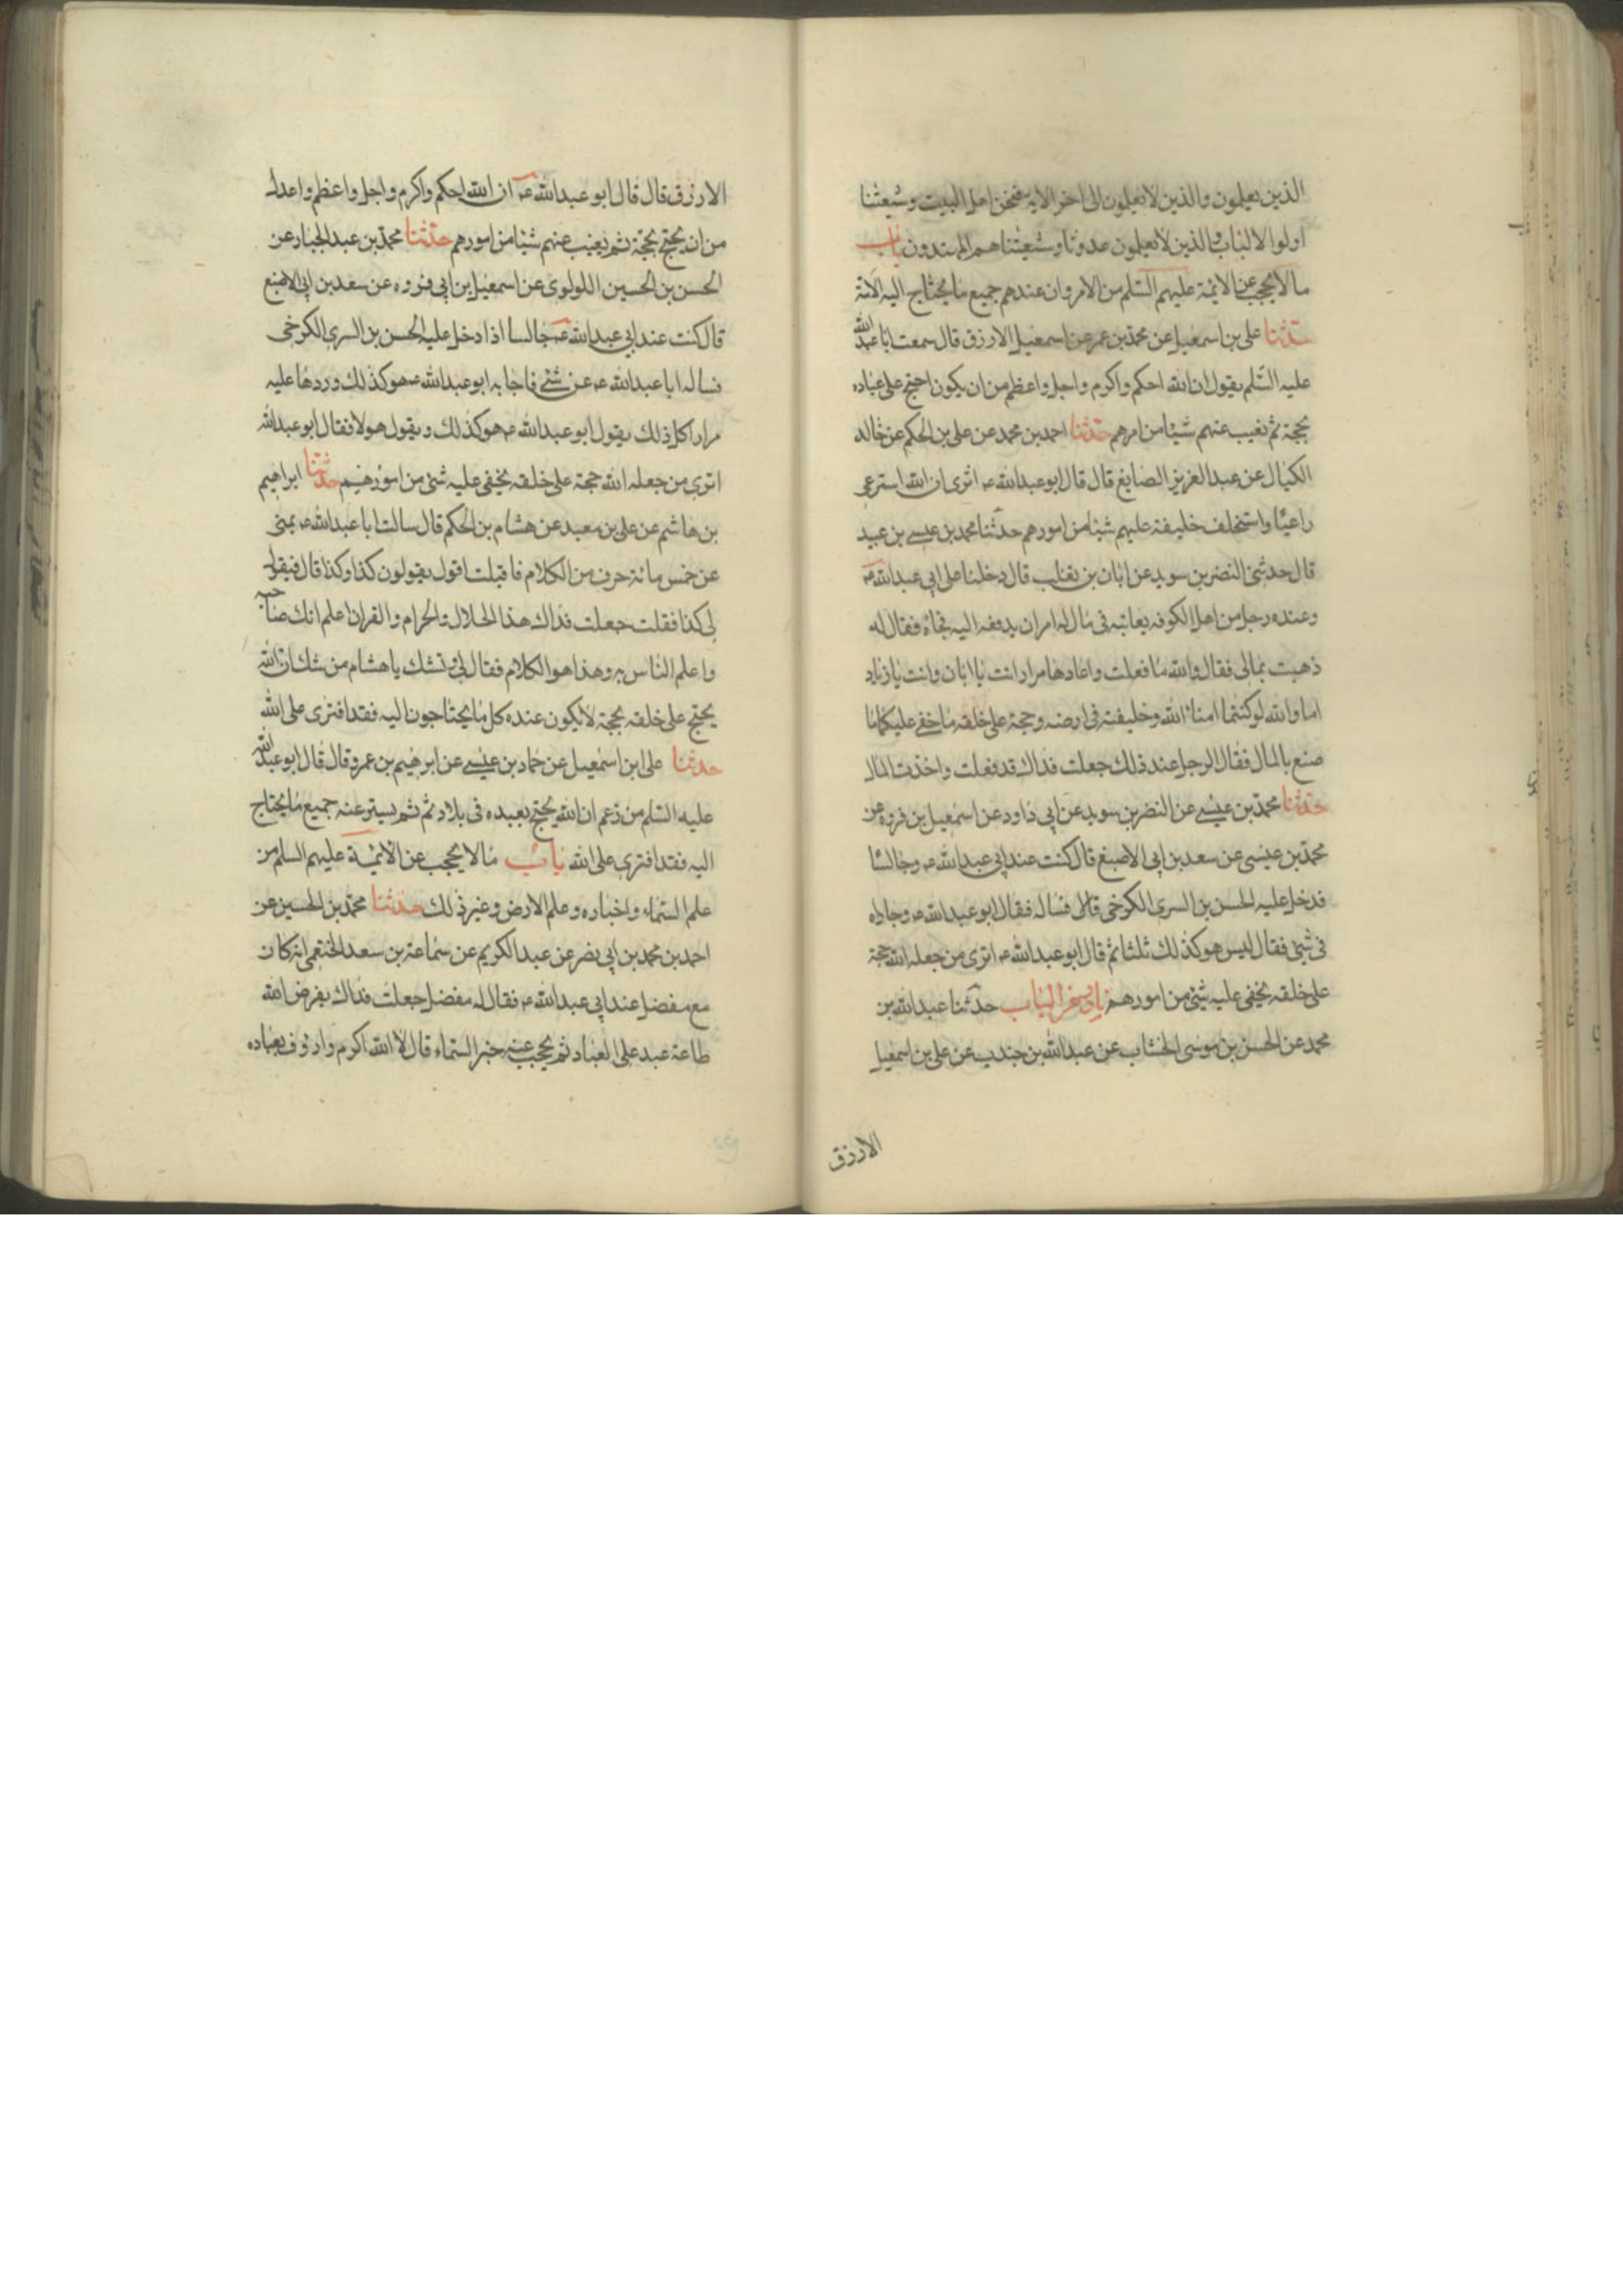 الذين يعلمون والذين لا يعلمون الى اخر الايه فنحن اهل البيت وشيعتنا
اولوا الالباب والذين لا يعلمون عدونا وشيعتنا هم المهتدون باب
ما لا يحجب عن الائمة عليهم السّلم من الامر وان عندهم جميع ما يحتاج اليه الامة
حدثنا على بن اسمعيل عن محمد بن عمر عن اسمعيل الازرق قال سمعت ابا عبد الله
عليه السّلم يقول ان الله احكم واكرم واجل واعظم من ان يكون احتج على عباده
بحجة ثم يغيب عنهم شيئا من امرهم حدثنا احمد بن محمد عن على بن الحكم عن خالد
الكيال عن عبد العزيز الصايغ قال قال ابو عبد الله ع اترى ان الله استرعى
راعيا واستخلف خليفة عليهم شيئا من امورهم حدثنا محمد بن عيسى بن عبيد
قال حدثنى النضر بن سويد عن ابان بن تغلب قال دخلنا على ابى عبد الله ع
وعنده رجل من اهل الكوفه يعاتبه فى مال له امر ان يدفعه اليه فجاه فقال له
ذهبت بمالى فقال والله ما فعلت واعادها مرارا انت يا ابان وانت يا زياد
اما والله لو كنتما امناء الله وخليفته فى ارضه وحجة على خلقه ما خفى عليكما ما
صنع بالمال فقال الرجل عند ذلك جعلت فداك قد فعلت واخذت المال
حدثنا محمد بن عيسى عن النضر بن سويد عن ابى داود عن اسمعيل بن فروه عن
محمد بن عيسى عن سعد بن ابى الاصبغ قال كنت عند ابى عبد الله ع وجالسا
فدخل عليه الحسن بن السرى الكرخى قال فساله فقال ابو عبد الله ع وجاداه
فى شئ فقال ليس هو كذلك ثلثا ثم قال ابو عبد الله ع اترى من جعله الله حجة
على خلقه يخفى عليه شئ من امورهم حدثنا عبد الله بن
محمد عن الحسن بن موسى الخشاب عن عبد الله بن جندب عن على بن اسمعيل
الازرق
الازرق قال قال ابو عبد الله ع ان الله احكم واكرم واجل واعظم واعدل
من ان يحتج بحجة ثم يغيب عنهم شيئا من امورهم حدثنا محمد بن عبد الجبار عن
الحسن بن الحسين اللولوى عن اسمعيل بن ابى فروه عن سعد بن ابى الاصبغ
قال كنت عند ابى عبد الله ع جالسا اذا دخل عليه الحسن بن السرى الكرخى
فساله ابا عبد الله ع عن شئ فاجابه ابو عبد الله ع هو كذلك وردها عليه
مرارا كل ذلك يقول ابو عبد الله ع هو كذلك ويقول هو لا فقال ابو عبد الله
اترى من جعله الله حجة على خلقه يخفى عليه شئ من امورهم حدثنا ابراهيم
بن هاشم عن على بن معبد عن هشام بن الحكم قال سالت ابا عبد الله ع بمنى
عن خمس مائة حرف من الكلام فاقبلت اقول يقولون كذا وكذا قال فيقول
لى كذا فقلت جعلت فداك هذا الحلال والحرام والقران اعلم انك صاحبه
واعلم الناس به وهذا هو الكلام فقال لى وتشك يا هشام من شك ان الله
يحتج على خلقه بحجة لا يكون عنده كل ما يحتاجون اليه فقد افترى على الله
حدثنا على ابن اسمعيل عن حماد بن عيسى عن ابرهيم بن عمر وقال قال ابو عبد الله
عليه السّلم من زعم ان الله يحتج بعبده فى بلاده ثم يستر عنه جميع ما يحتاج
اليه فقد افترى على الله باب ما لا يحجب عن الائمة عليهم السلم من
علم السّماء واخباره وعلم الارض وغير ذلك حدثنا محمد بن الحسين عن
احمد بن محمد بن ابى نصر عن عبد الكريم عن سماعة بن سعد الخثعمى انه كان
مع مفضل عند ابى عبد الله ع فقال له مفضل جعلت فداك يفرض الله
طاعة عبد على العباد ثم يحجب عنه خبر السّماء قال لا الله اكرم وارؤف بعباده